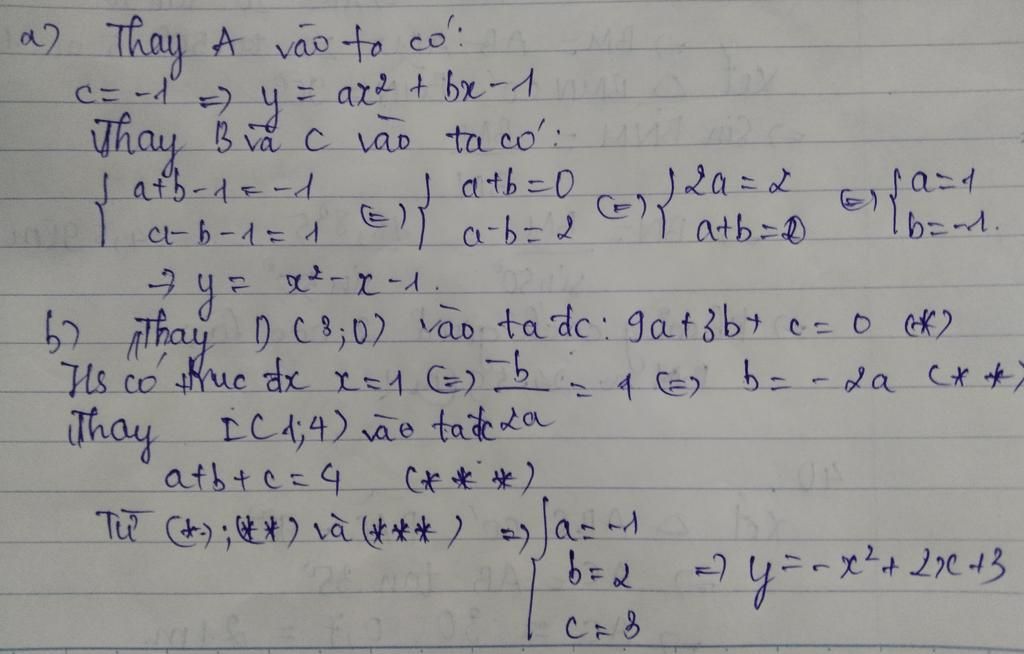 a) Thay A vào ta có:
c = -1 => y = ax² + bx - 1
Thay B và C vào ta có:
{ a+b-1 = -1 (=) { a+b = 0 (=) { 2a = 2 (=) { a = 1
a-b-1 = 1 a-b = 2 a+b = 0 b = -1.
→ y = x² - x - 1.
b) Thay D (3;0) vào ta đc: 9a+3b+c = 0 (*)
Hs có trục đx x = 1 (=) -b/2a = 1 (=) b = -2a (**)
Thay I(1;4) vào ta đc
a+b+c = 4 (***)
Từ (*); (**) và (***) => { a = -1
b = 2 => y = -x² + 2x + 3
c = 3